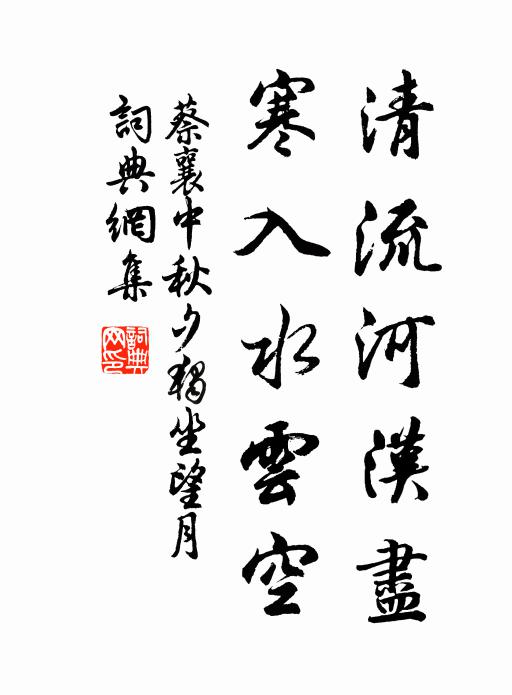 清流河漢盡
寒入水雲空
蔡襄中秋夕獨坐望月
詞典網集
詞典網印